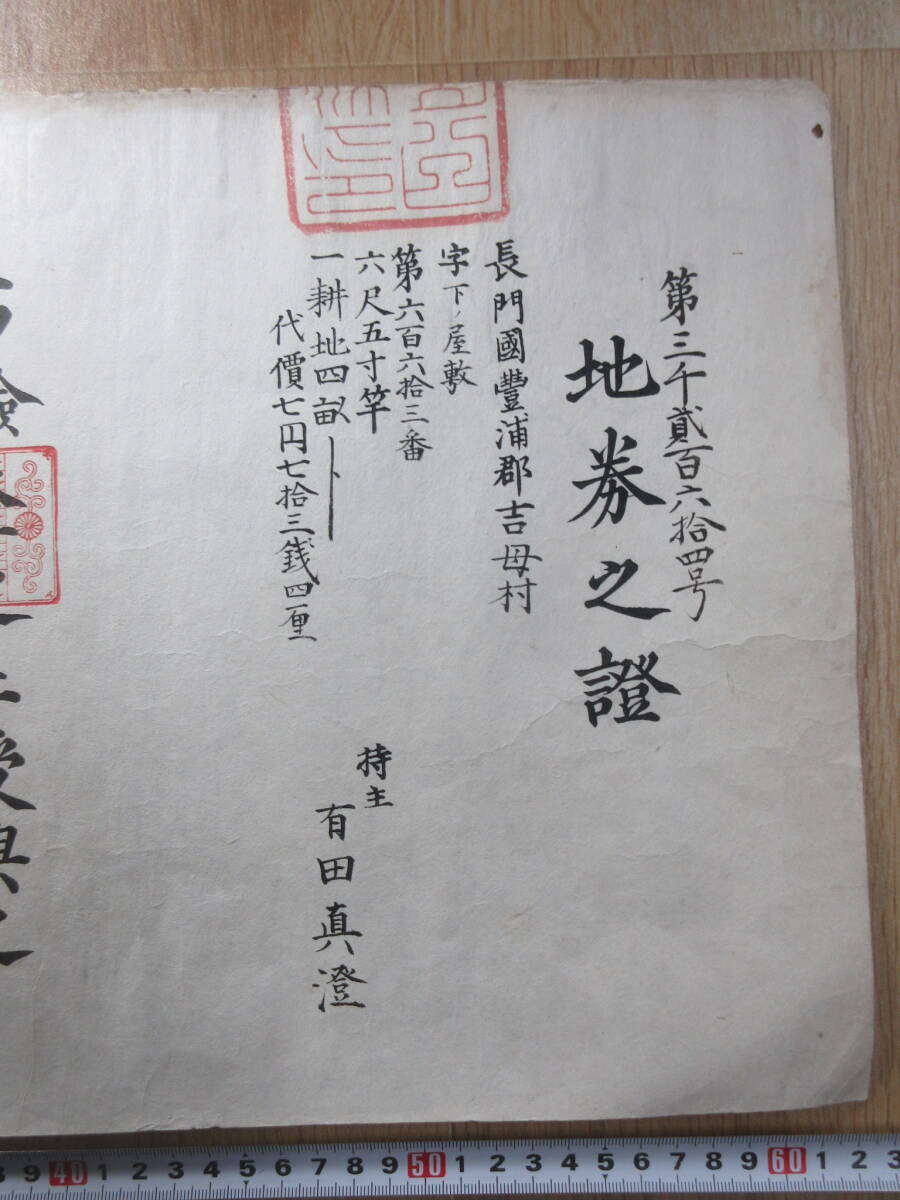 第三千貳百六拾四号
地券之證
長門國豐浦郡吉母村
字下ノ屋敷
第六百六拾三番
六尺五寸竿
一耕地四畝
代價七円七拾三銭四厘
持主
有田真澄
授與之
9 40 1 2 3 4 5 6 7 8 9 50 1 2 3 4 5 6 7 8 9 60 1 2 3